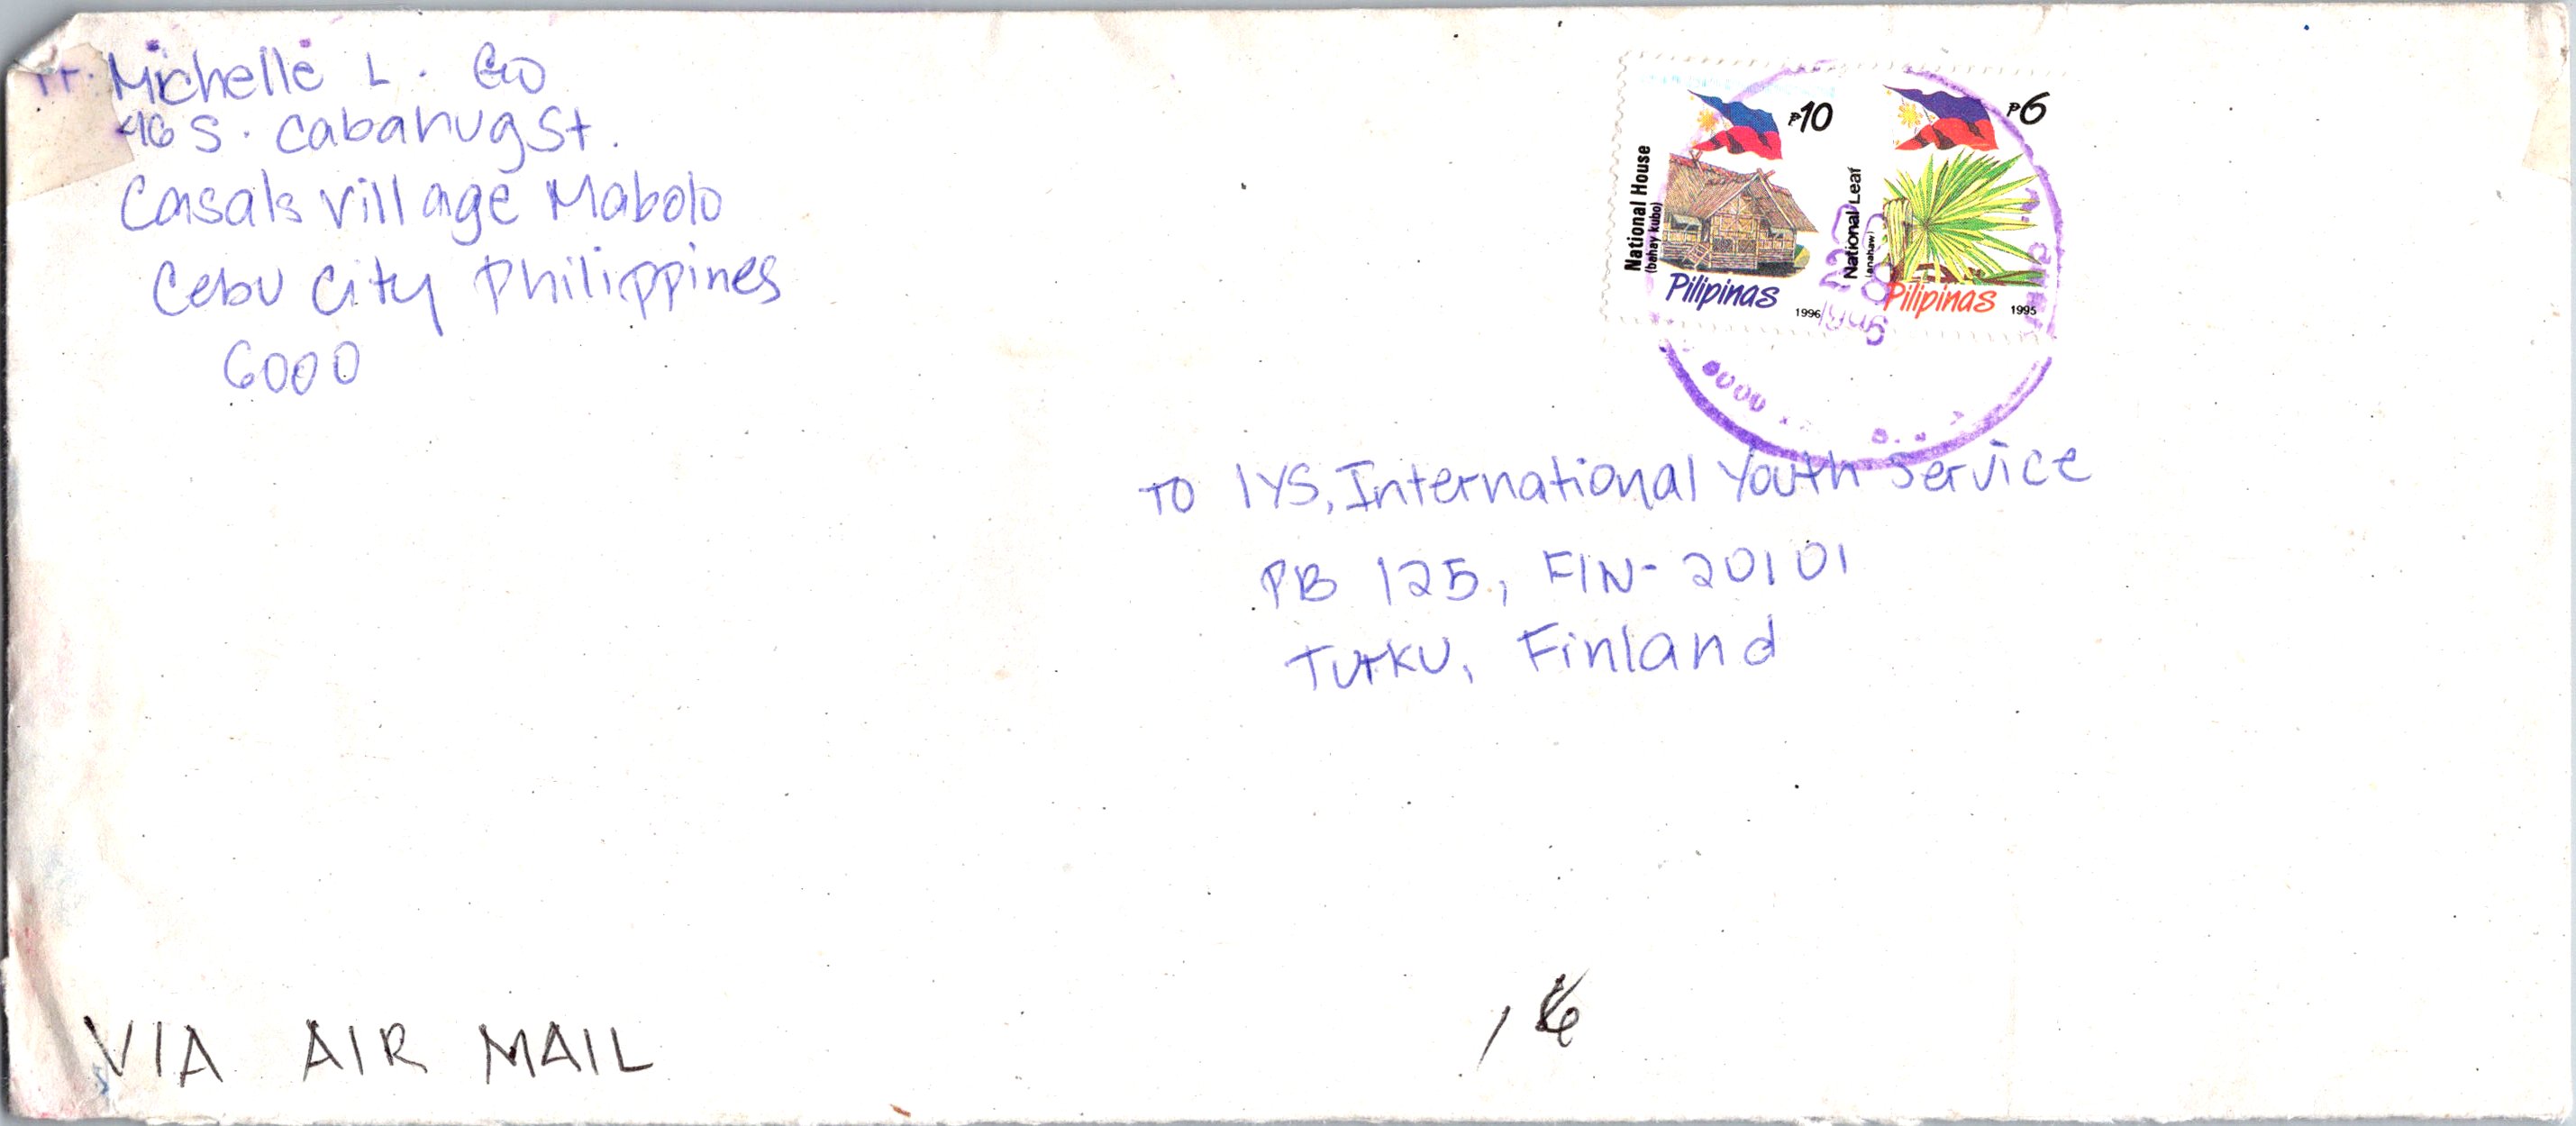 Fr: Michelle L. Go
46 S. Cabahug St.
Casals Village Mabolo
Cebu City Philippines
6000
₱10
National House
(bahay kubo)
Pilipinas
1996
₱6
National Leaf
(anahaw)
Pilipinas
1995
TO IYS, International Youth Service
PB 125, FIN-20101
Turku, Finland
VIA AIR MAIL
16